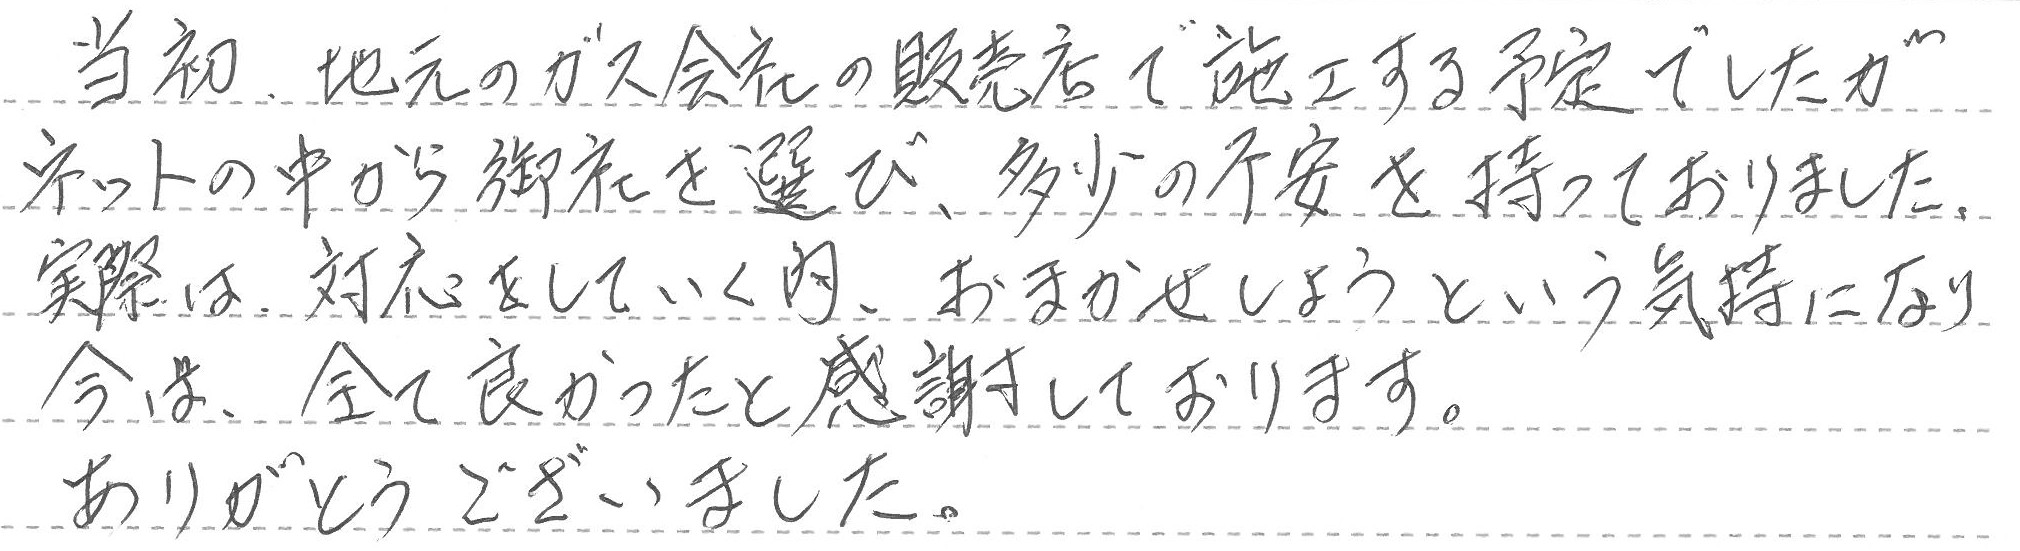 当初、地元のガス会社の販売店で施工する予定でしたが
ネットの中から御社を選び、多少の不安を持っておりました、
実際は、対応をしていく内、おまかせしようという気持になり
今は、全て良かったと感謝しております。
ありがとうございました。